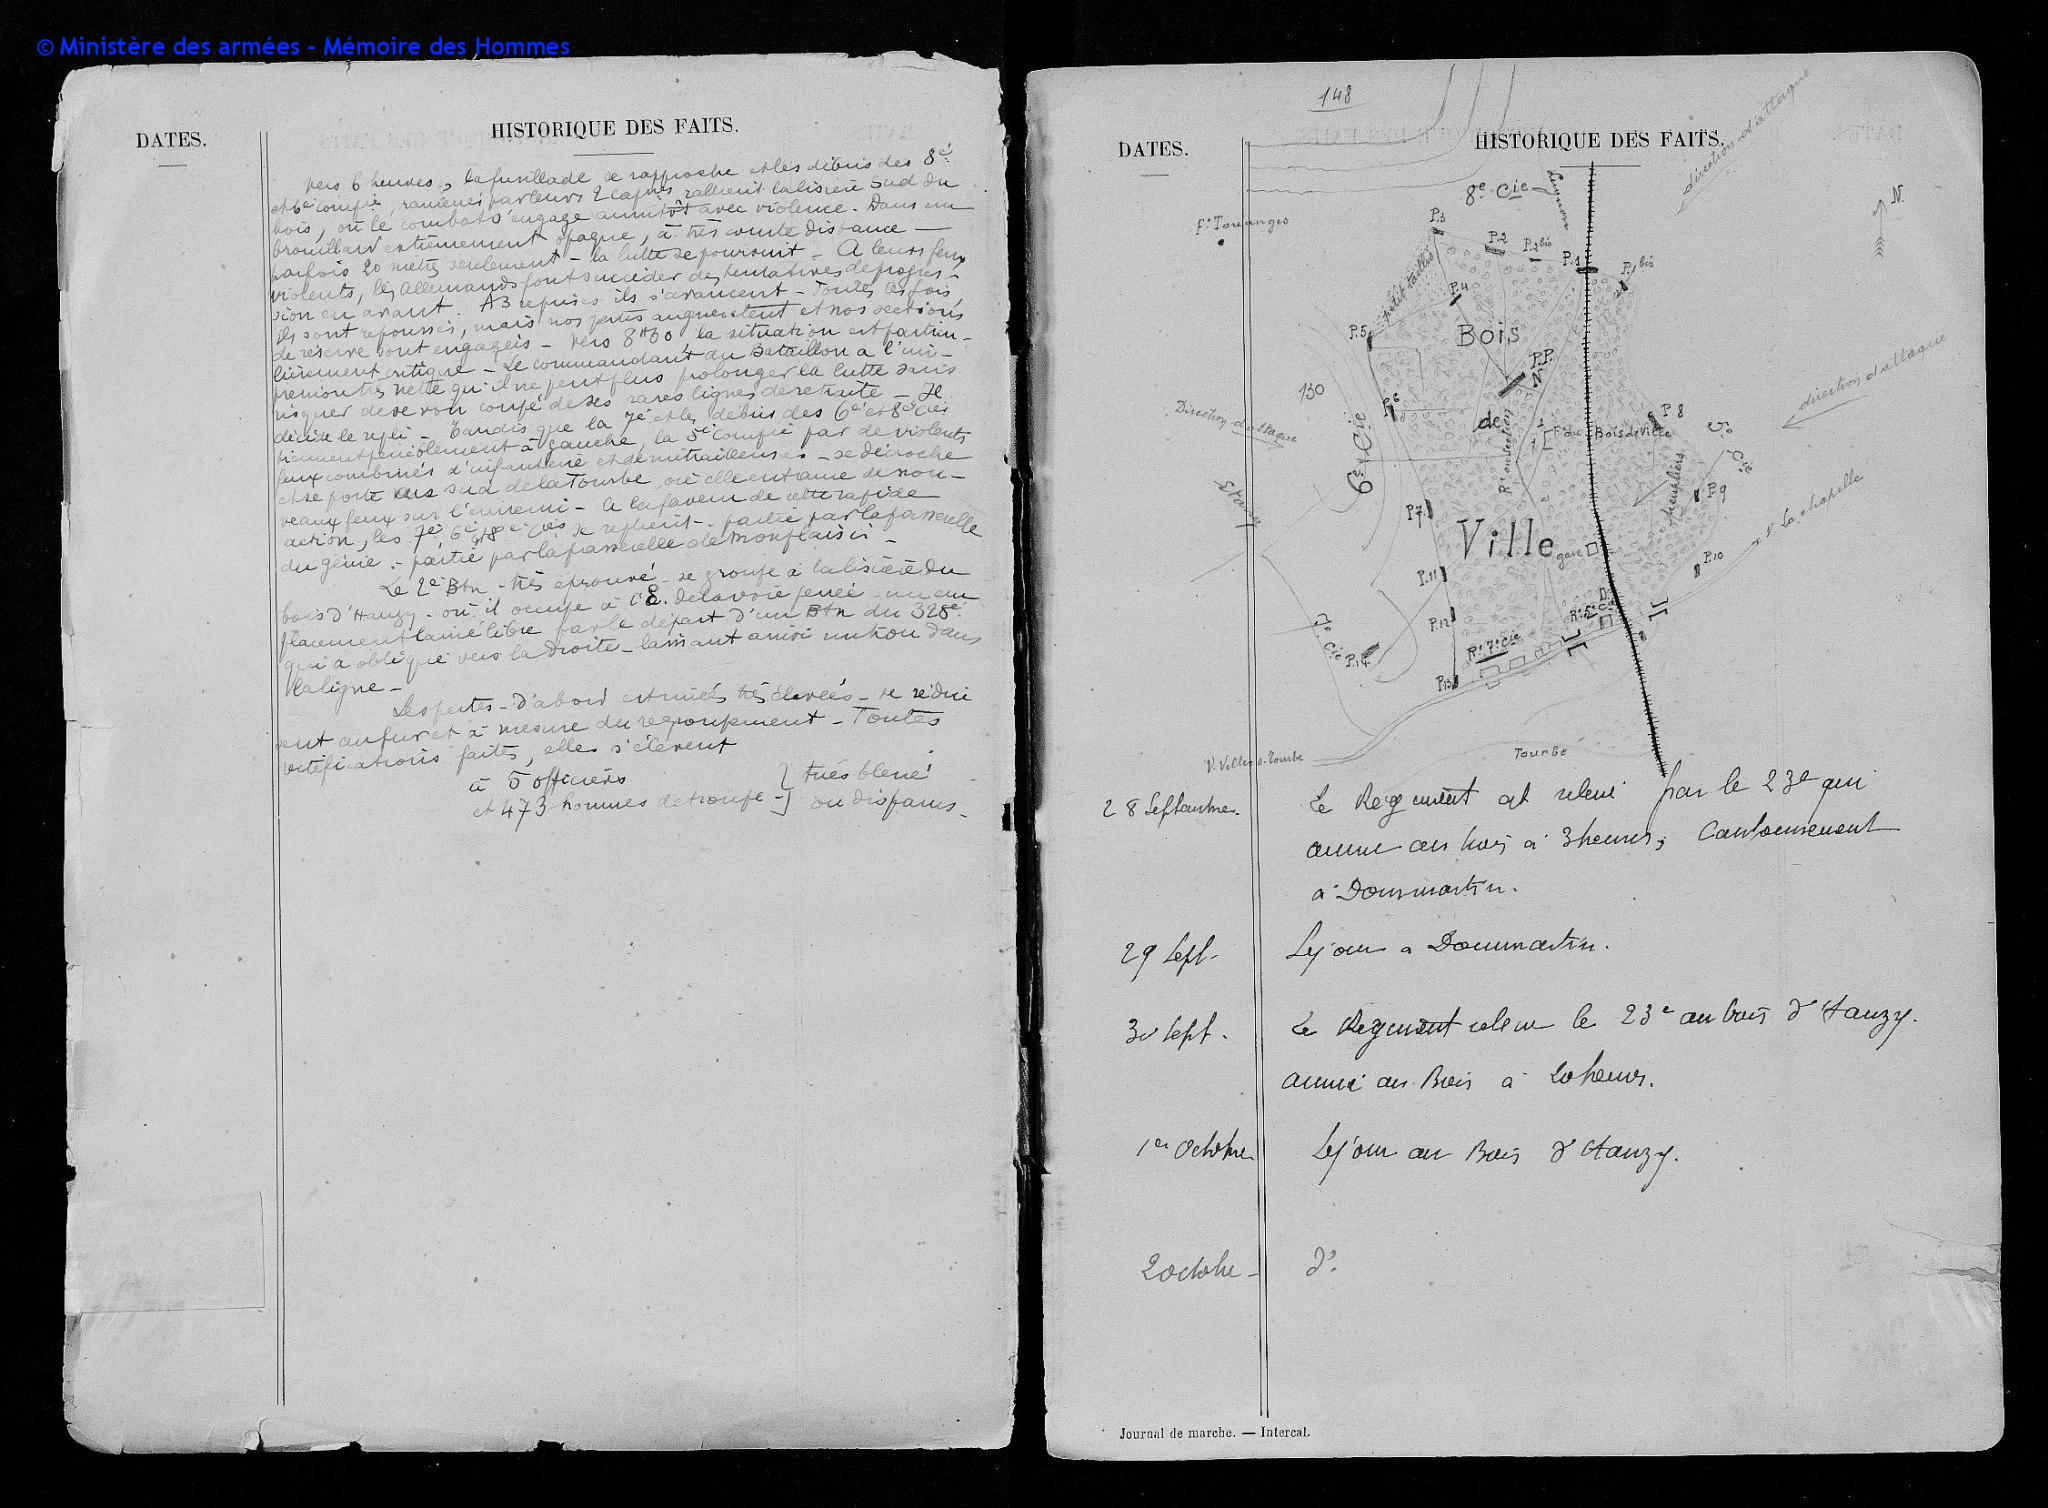 © Ministère des armées - Mémoire des Hommes
DATES.
HISTORIQUE DES FAITS.
Vers 6 heures, la fusillade se rapproche et les débris des 8e
et 6e compies, ramenés par leurs 2 capnes rallient la lisière Sud du
bois, où le combat s'engage aussitôt avec violence. Dans un
brouillard extrêmement opaque, à très courte distance —
parfois 20 mètres seulement – la lutte se poursuit – A leurs feux
violents, les Allemands font succéder des tentatives de progres-
sion en avant. A 3 reprises ils s'avancent – Toutes les fois
ils sont repoussés, mais nos pertes augmentent et nos sections
de réserve sont engagées – Vers 8h30 la situation est particu-
lièrement critique – Le commandant du Bataillon a l'im-
pression très nette qu'il ne peut plus prolonger la lutte sans
risquer de se voir coupé de ses rares lignes de retraite – Il
décide le repli – Tandis que la 7e et les débris des 6e et 8e Cies
tiennent péniblement à gauche, la 5e compie par de violents
feux combinés d'infanterie et de mitrailleuses – se décroche
et se porte au sud de la Tourbe, où elle entame de nou-
veaux feux sur l'ennemi – A la faveur de cette rapide
action, les 7e, 6e et 8e Cies se replient – partie par la passerelle
du génie – partie par la passerelle de Monplaisir –
Le 2e Btn – très éprouvé – se groupe à la lisière du
bois d'Hauzy – où il occupe à l'E. de la voie ferrée – un em
placement laissé libre par le départ d'un Btn du 328e
qui a obliqué vers la droite – laissant ainsi un trou dans
la ligne –
Les pertes – d'abord estimées très élevées – se rédui
sent au fur et à mesure du regroupement – Toutes
rectifications faites, elles s'élèvent
à 5 officiers
et 473 hommes de troupe – } tués blessés
ou disparus –
148
DATES.
HISTORIQUE DES FAITS.
direction d'attaque
N.
8e Cie
Fe Touanges
P.3
P.2
P.2 bis
P.1
P.1 bis
petit taillis
P.4
P.5
Bois
P.P.
N
130
direction d'attaque
P6
Direction d'attaque
6e Cie
de
P 8
Bois de Ville
5e Cie
P.9
Etang
P7
Ville
gare
V. La chapelle
P.10
P.11
D.
P.12
Rn 5e Cie
7e Cie
P.14
Rn 7e Cie
P.13
V. Ville s. Tourbe
Tourbe
28 Septembre.
Le Régiment est relevé par le 23e qui
arrive au bois à 3 heures, Cantonnement
à Dommartin.
29 Sept.
Séjour à Dommartin.
30 Sept.
Le Régiment relève le 23e au bois d'Hauzy.
arrivé au Bois à 20 heures.
1er Octobre
Séjour au Bois d'Hauzy.
2 octobre –
do.
Journal de marche. — Intercal.